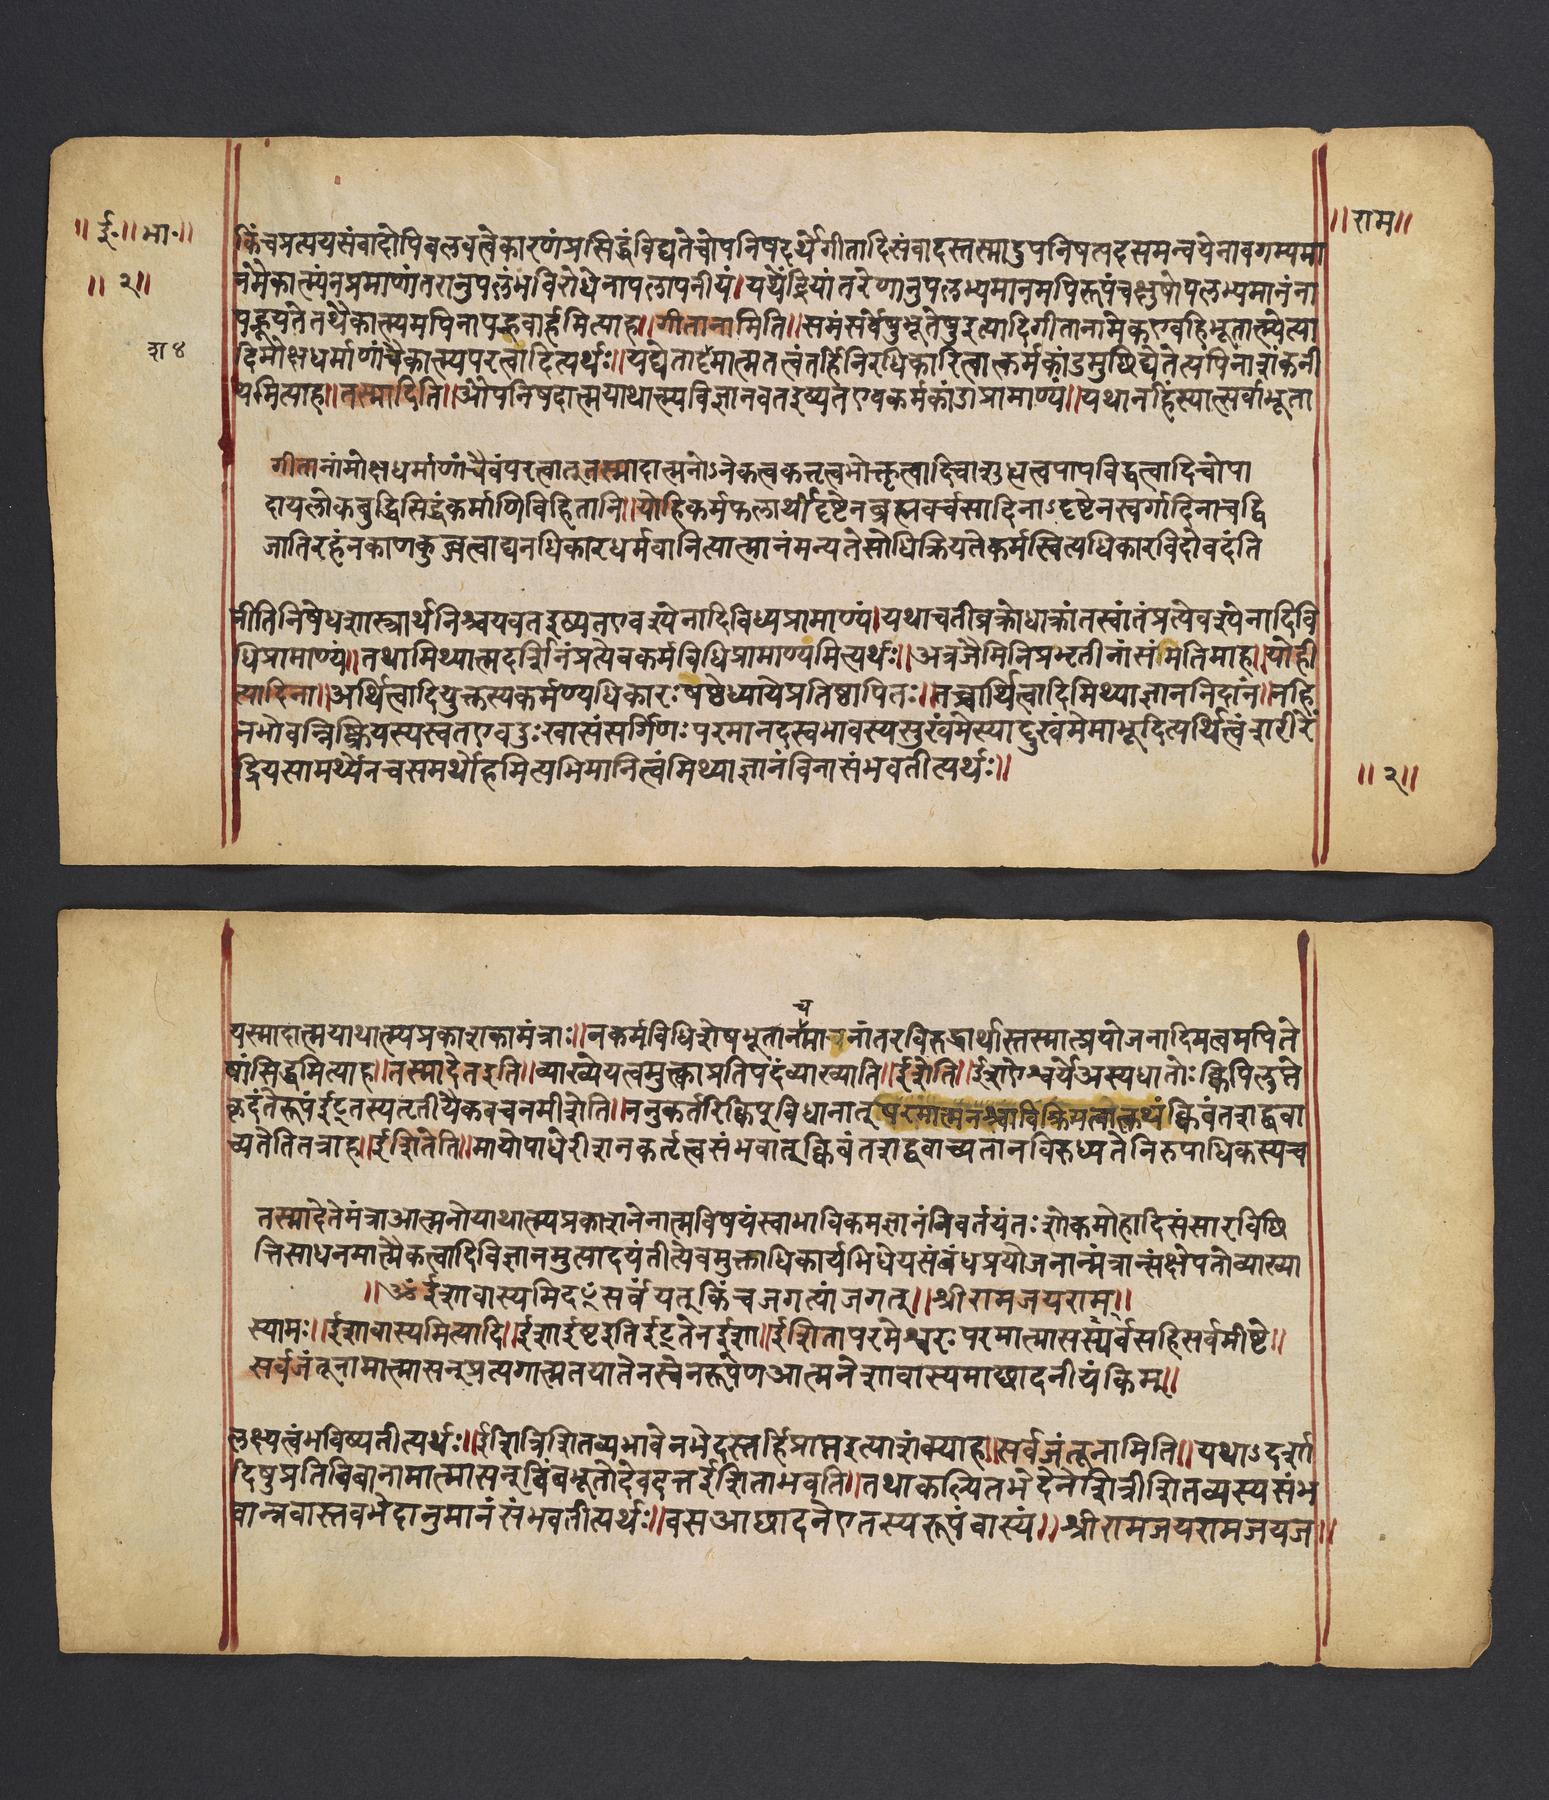 ॥ ई॰॥ भा॰॥
॥ २॥
शा ४
॥राम॥
किंचप्रत्ययसंवादोपिबलवत्वेकारणंप्रसिद्धंविद्यतेचोपनिषदर्थेगीतादिसंवादस्तस्मादुपनिषत्पदसमन्वयेनावगम्यमा
नमेकात्म्यंनप्रमाणांतरानुपलंभविरोधेनापलापनीयं।यथेंद्रियांतरेणानुपलभ्यमानमपिरूपंचक्षुषोपलभ्यमानंना
पह्नूयतेतथैकात्म्यमपिनापह्नवार्हमित्याह॥गीतानामिति॥समंसर्वेषुभूतेषुइत्यादिगीतानामेकएवहिभूतात्मेत्या
दिमोक्षधर्माणांचैकात्म्यपरत्वादित्यर्थः॥यद्येतादृमात्मतत्वंतर्हिनिरधिकारित्वात्कर्मकांडमुछिद्येतेत्यपिनाशंकनी
यमित्याह॥तस्मादिति॥औपनिषदात्मयाथात्म्यविज्ञानवतइष्यतएवकर्मकांडाप्रामाण्यं॥यथानहिंस्यात्सर्वाभूता
गीतानांमोक्षधर्माणांचैवंपरत्वात्तस्मादात्मनोऽनेकत्वकत्तृत्वभोक्तृत्वादिचाशुद्धत्वपापविद्धत्वादिचोपा
दायलोकबुद्धिसिद्धंकर्माणिविहितानि॥योहिकर्मफलार्थीदृष्टेनब्रह्मवर्चसादिनाऽदृष्टेनस्वर्गादिनाचद्वि
जातिरहंनकाणकुब्जत्वाद्यनधिकारधर्मवानित्यात्मानंमन्यतेसोधिक्रियतेकर्मस्वित्यधिकारविदोवदंति
नीतिनिषेधशास्त्रार्थनिश्चयवतइष्यतएवश्येनादिविध्यप्रामाण्यं।यथाचतीव्रक्रोधाक्रांतस्वांतंप्रत्येवश्येनादिवि
धिप्रामाण्यं॥तथामिथ्यात्मदर्शिनंप्रत्येवकर्मविधिप्रामाण्यमित्यर्थः॥अत्रजैमिनिप्रभृतीनांसंमतिमाह॥योही
त्यादिना॥अर्थित्वादियुक्तस्यकर्मण्यधिकारःषष्ठेध्यायेप्रतिष्ठापितः॥तच्चार्थित्वादिमिथ्याज्ञाननिदानं॥नहि
नभोवन्निष्क्रियस्यस्वतएवदुःखासंसर्गिणःपरमानंदस्वभावस्यसुखंमेस्यादुखंमेमाभूदित्यर्थित्वंशरीरें
द्रियसामर्थ्येनचसमर्थोहमित्यभिमानित्वंमिथ्याज्ञानंविनासंभवतीत्यर्थः॥
॥ २॥
च
यस्मादात्मयाथात्म्यप्रकाशकामंत्राः॥नकर्मविधिशेषभूतानमानांतरविरुद्धार्थास्तस्मात्प्रयोजनादिमत्वमपिते
षांसिद्धमित्याह॥तस्मादेतइति॥व्याख्येयत्वमुक्त्वाप्रतिपदंव्याख्याति॥ईशेति॥ईशऐश्वर्येअस्यधातोःक्विपिलुप्ते
कृदंतेरूपंईट्तस्यतृतीयैकवचनमीशेति॥ननुकर्तरिक्विप्विधानात्परमात्मनश्चाविक्रियत्वात्कथंक्विबंतशब्दवा
च्यतेतितत्राह॥ईशितेति॥मायोपाधेरीशनकर्तृत्वसंभवात्क्विबंतशब्दवाच्यतानविरुध्यतेनिरुपाधिकस्यच
तस्मादेतेमंत्राआत्मनोयाथात्म्यप्रकाशनेनात्मविषयंस्वाभाविकमज्ञानंनिवर्तयंतःशोकमोहादिसंसारविछि
त्तिसाधनमात्मैकत्वादिविज्ञानमुत्पादयंतीत्येवमुक्ताधिकार्यभिधेयसंबंधप्रयोजनान्मंत्रान्संक्षेपतोव्याख्या
॥ॐईशावास्यमिदꣳसर्वंयत्किंचजगत्यांजगत्॥श्रीरामजयराम॥
स्यामः॥ईशावास्यमित्यादि॥ईशाईष्टइतिईट्तेनईशा॥ईशितापरमेश्वरःपरमात्मासर्वस्यसहिसर्वमीष्टे॥
सर्वजंतूनामात्मासन्प्रत्यगात्मतयातेनस्वेनरूपेणआत्मनेशावास्यमाछादनीयंकिम्॥
लक्ष्यत्वंभविष्यतीत्यर्थः॥ईशित्रिशितव्यभावेनभेदस्तर्हिप्राप्तइत्याशंक्याह॥सर्वजंतूनामिति॥यथाऽदर्शा
दिषुप्रतिबिंबानामात्मासन्बिंबभूतोदेवदत्तईशिताभवति॥तथाकल्पितभेदेनेशित्रीशितव्यस्यसंभ
वान्नवास्तवभेदानुमानंसंभवतीत्यर्थः॥वसआछादनेएतस्यरूपंवास्यं॥श्रीरामजयरामजयज॥